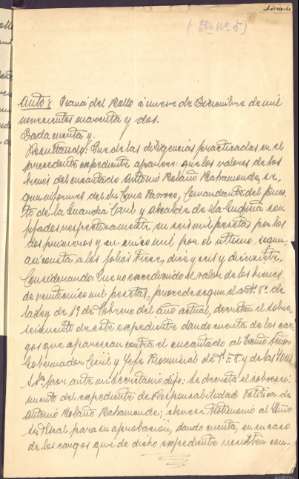 Auto: Viana del Bollo a nueve de Diciembre de mil
novecientos cuarenta y dos.
Dada cuenta y.
Resultando: Que de las diligencias practicadas en el
precedente expediente aparece: que los valores de los
bienes del encartado Antonio Bahamonde,
que informes del Sr. Cura Párroco, Comandante del pues-
to de la Guardia Civil y Alcalde de La Gudiña son
fijados respectivamente en seis mil pesetas por los
dos primeros y en cinco mil por el último, según
consta a los folios
Considerando: Que no excediendo el valor de los bienes
de veinticinco mil pesetas, procede según el artº 8º de
la Ley de 19 de Febrero del año actual, decretar el sobre-
seimiento de este expediente dando cuenta de los car-
gos que aparezcan contra el encartado al Excmo. Señor
Gobernador Civil y Jefe Provincial de F.E.T. y de las JONS
S.Sª por ante mi Secretario dijo: Se decreta el sobresei-
miento del expediente de Responsabilidad Política de
Antonio Bahamonde; elévese testimonio al
para su aprobación, dando cuenta, en su caso
de los cargos que de dicho expediente resulten con-